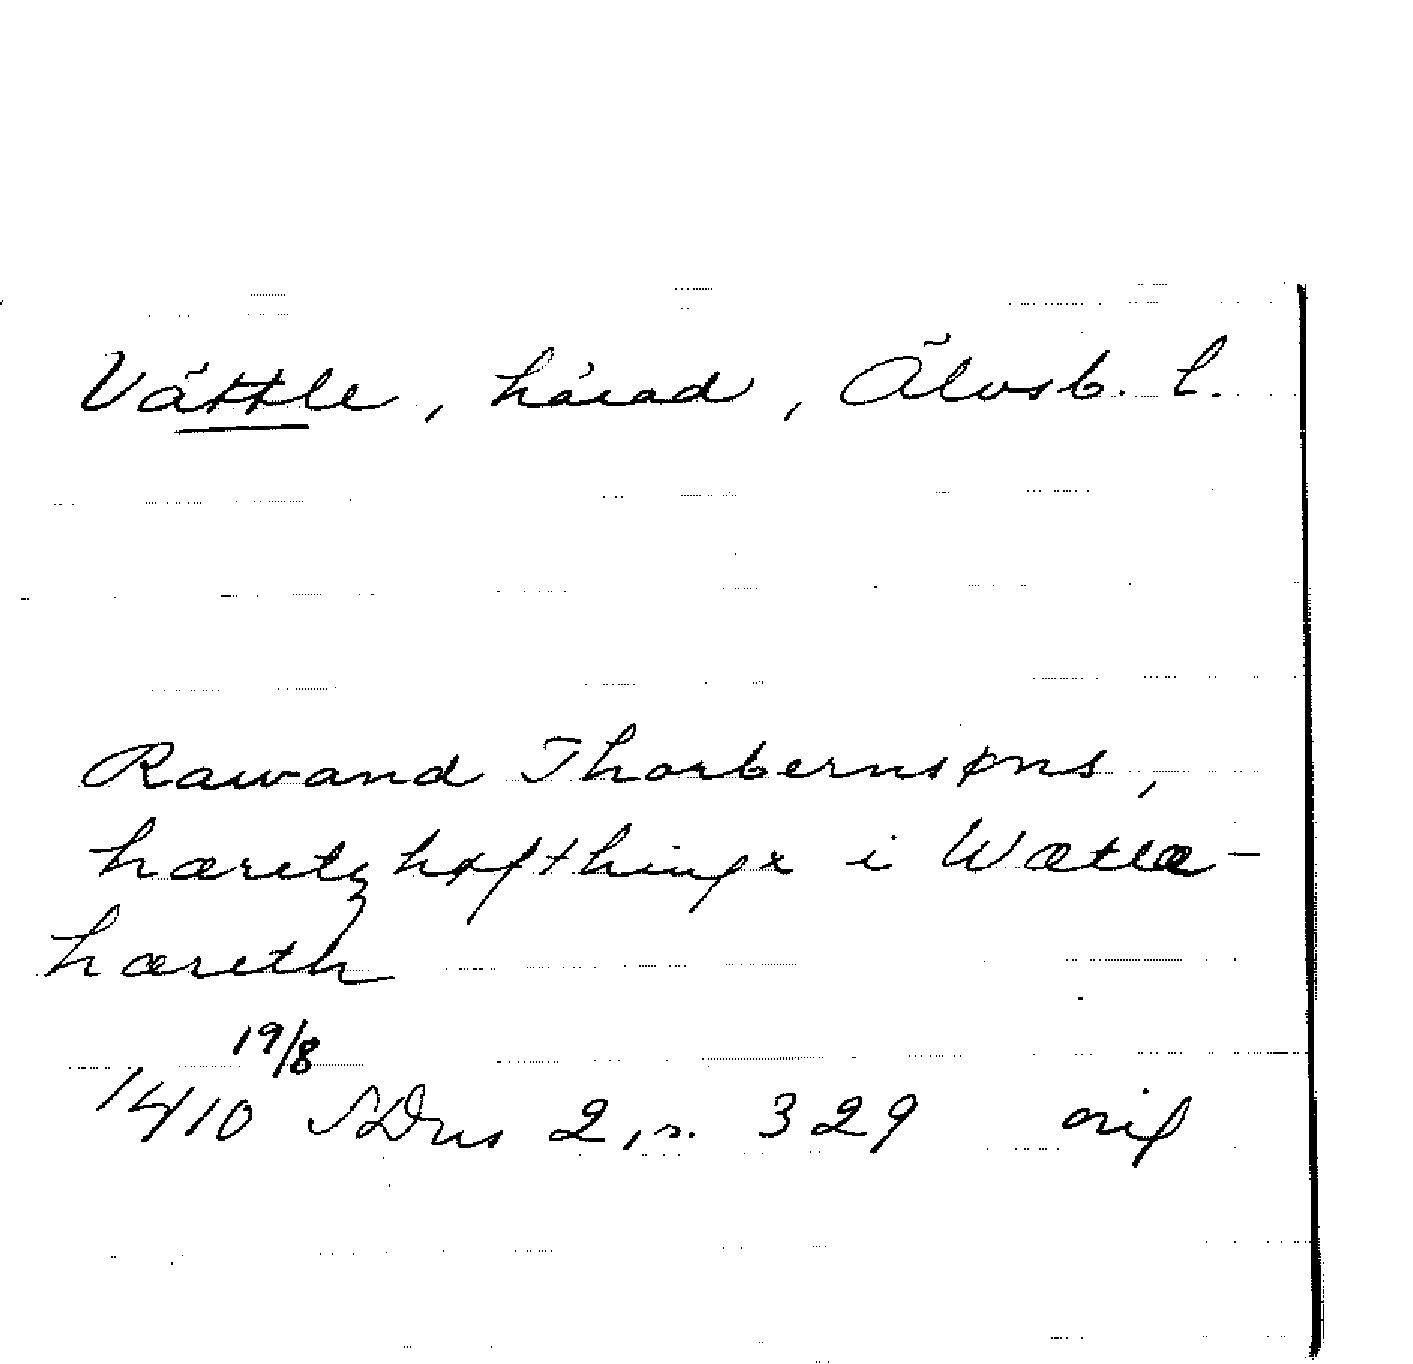 Vättle, härad, Älvsb. l.
Rawand Thorbernsøns,
hæretzhøfthingx i Wætlæ-
hæreth
19/8
1410 SDns 2, s. 329 orig